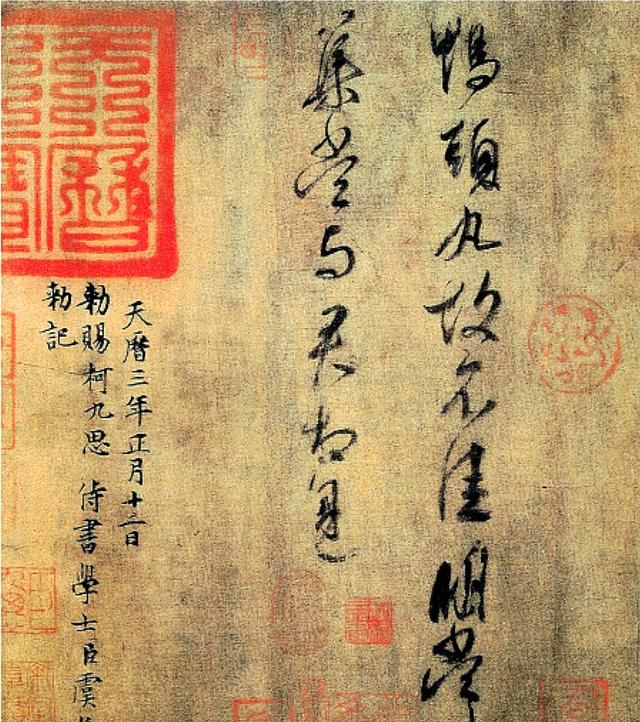 鴨頭丸故不佳明當
集當与君相見
天曆三年正月十二日
勅賜柯九思 侍書學士臣虞
勅記